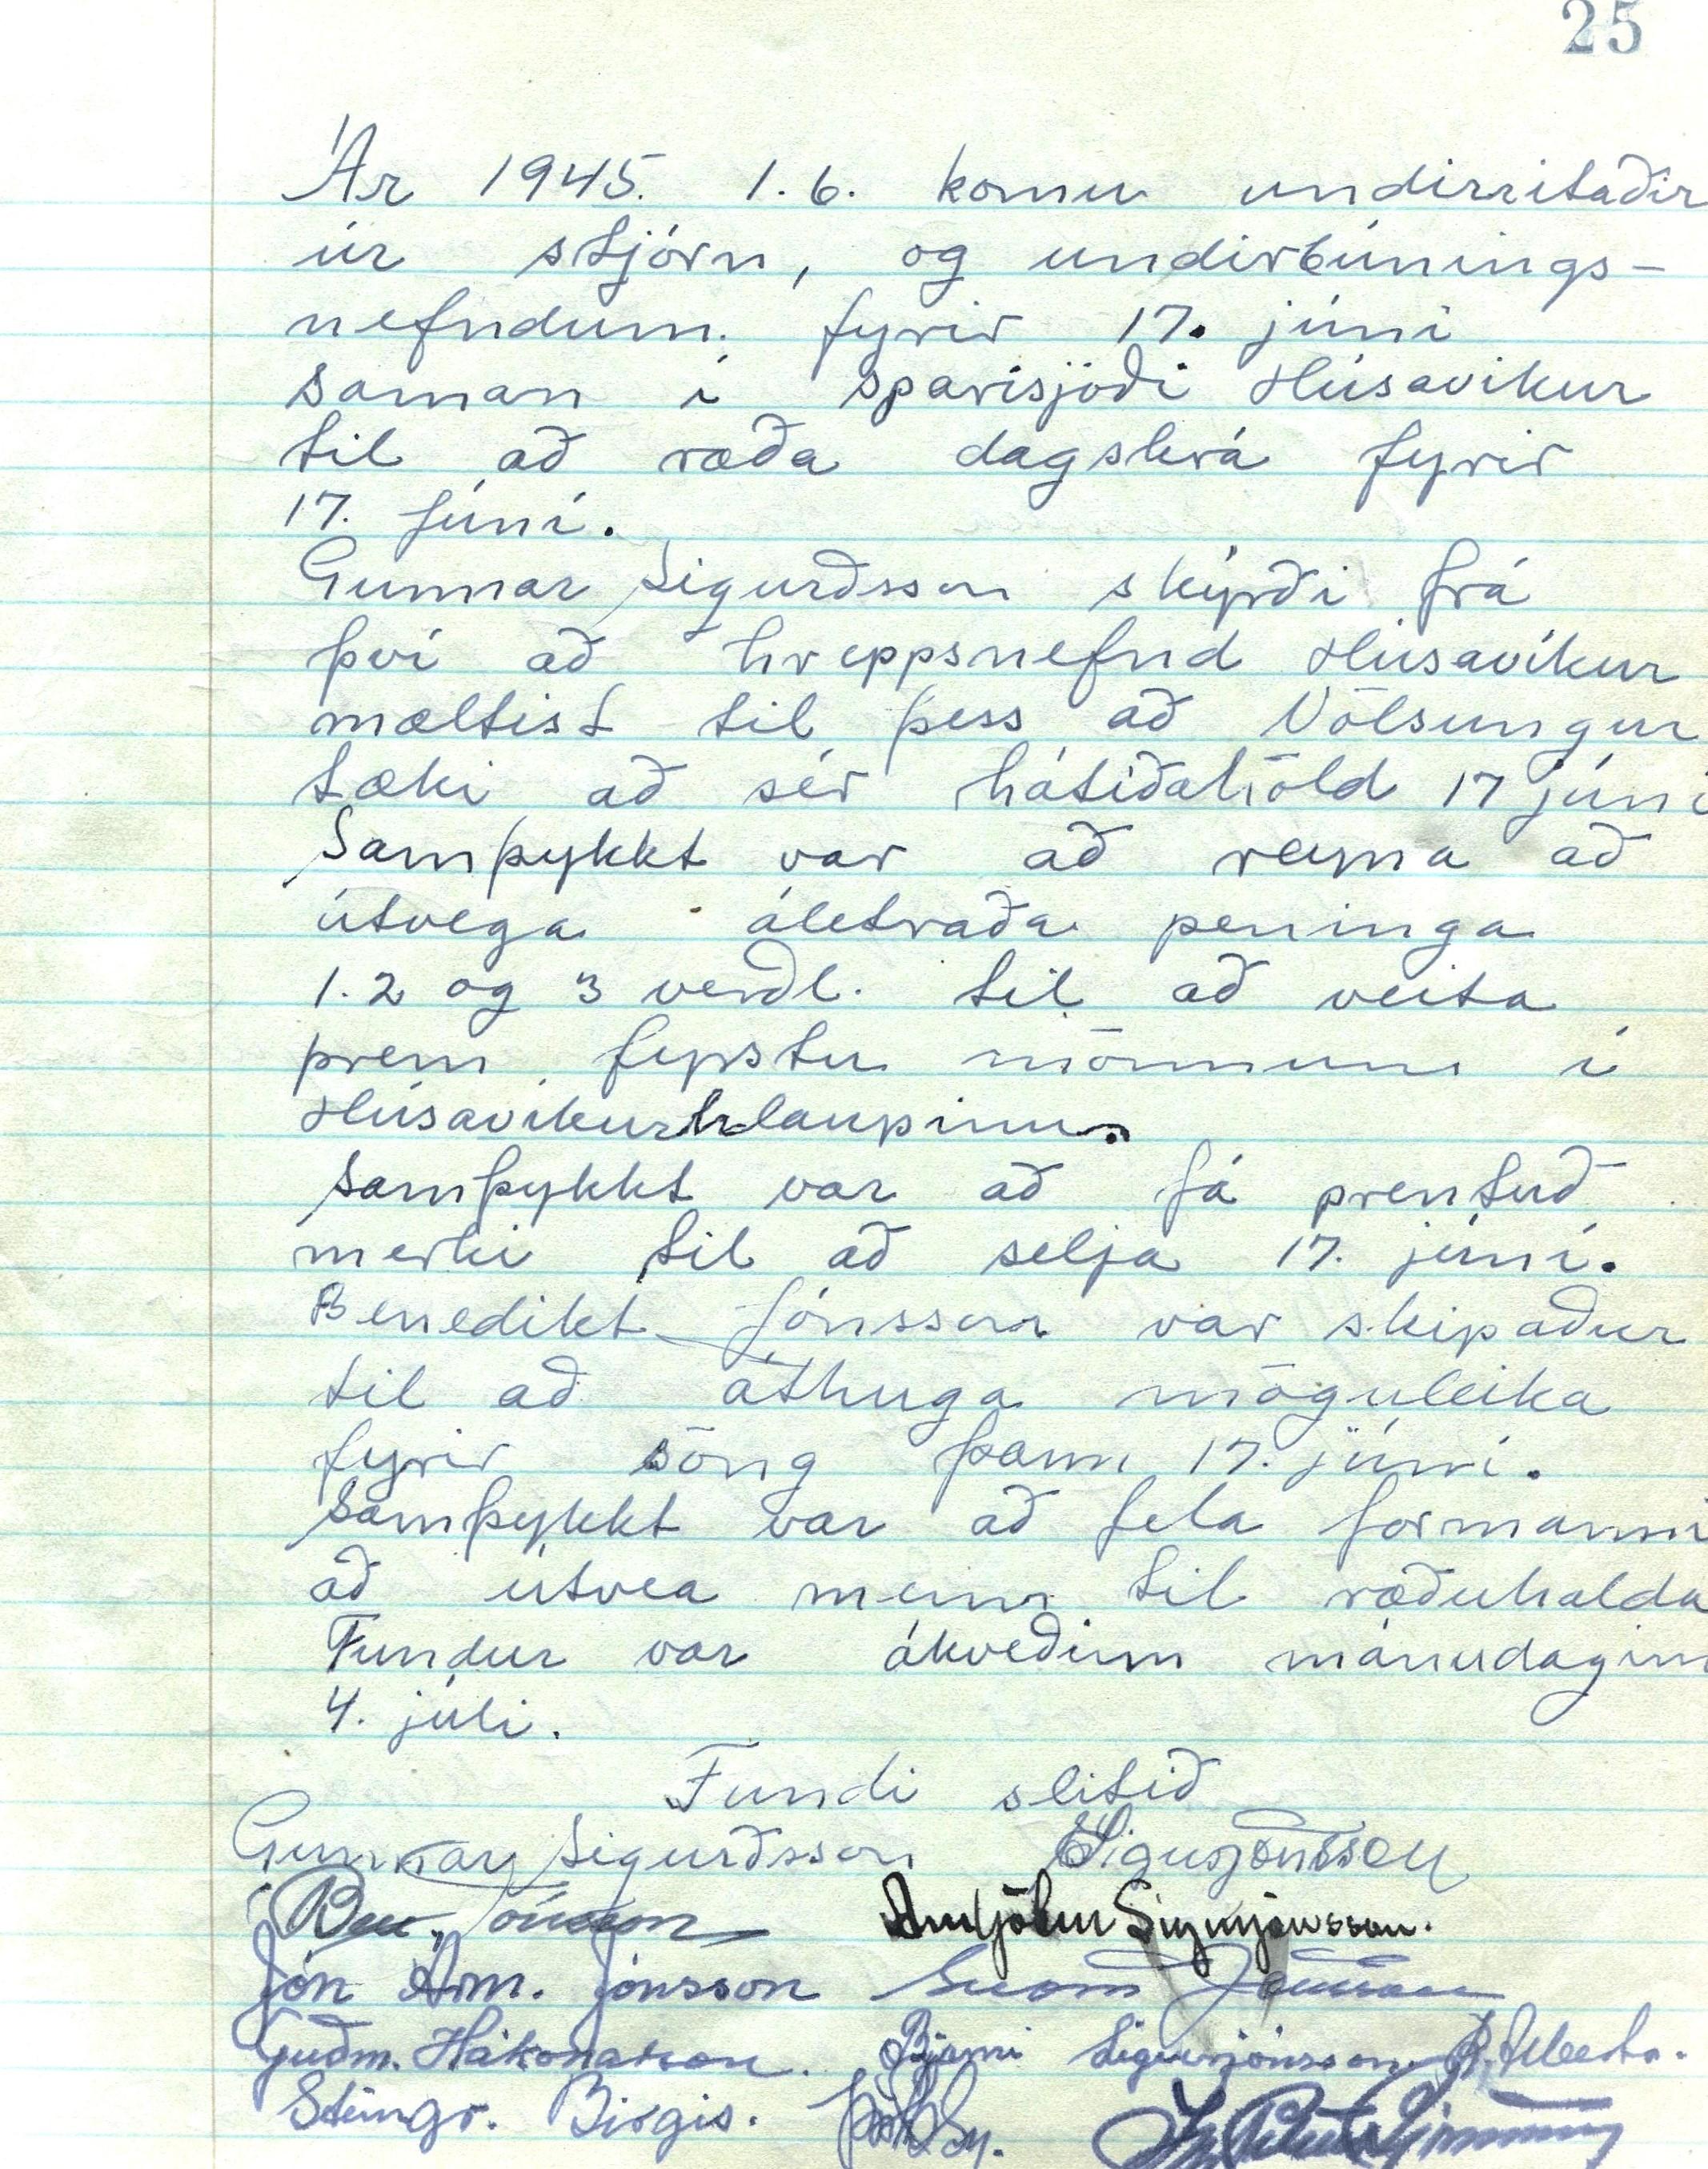 25
Ár 1945. 1.6. komu undirritaðir
úr stjórn, og undirbúnings-
nefndum fyrir 17. júní
saman í sparisjóði Húsavíkur
til að ræða dagskrá fyrir
17. júní.
Gunnar Sigurðsson skýrði frá
því að hreppsnefnd Húsavíkur
mæltist til þess að Völsungur
tæki að sér hátíðahöld 17 júní
Samþykkt var að reyna að
útvega áletraða peninga
1. 2 og 3 verðl. til að veita
þrem fyrstu mönnum í
Húsavíkurhlaupinu.
Samþykkt var að fá prentuð
merki til að selja 17. júní.
Benedikt Jónsson var skipaður
til að athuga möguleika
fyrir söng þann 17. júní.
Samþykkt var að fela formanni
að útvea menn til ræðuhalda
Fundur var ákveðinn mánudaginn
4. júlí.
Fundi slitið
Gunnar Sigurðsson Sigurjónsson
Ben. Jónsson Arnljótur Sigurjónsson.
Jón Arm. Jónsson Jónsson
Guðm. Hákonarson. Bjarni Sigurjónsson.
Steingr. Birgis.